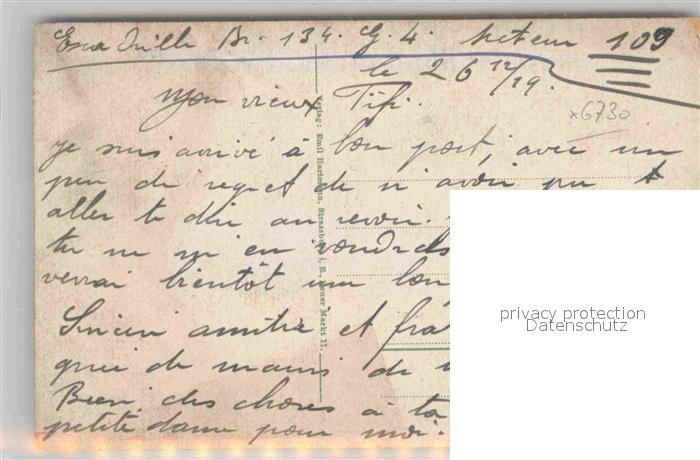 Escadrille Br. 134. G. 4. Secteur 109
le 26 12/19.
Mon vieux Fifi.
x6730
je suis arrivé à bon port, avec un
peu de regret de n'avoir pu t
aller te dire au revoir.
tu ne m'en voudras
verrai bientôt un bon
Sincère amitié et
de mains de
Bien des choses à ta
petite dame pour moi.
Verlag: Emil Hartmann, Strassburg i. E., Neuer Markt 17.
privacy protection
Datenschutz